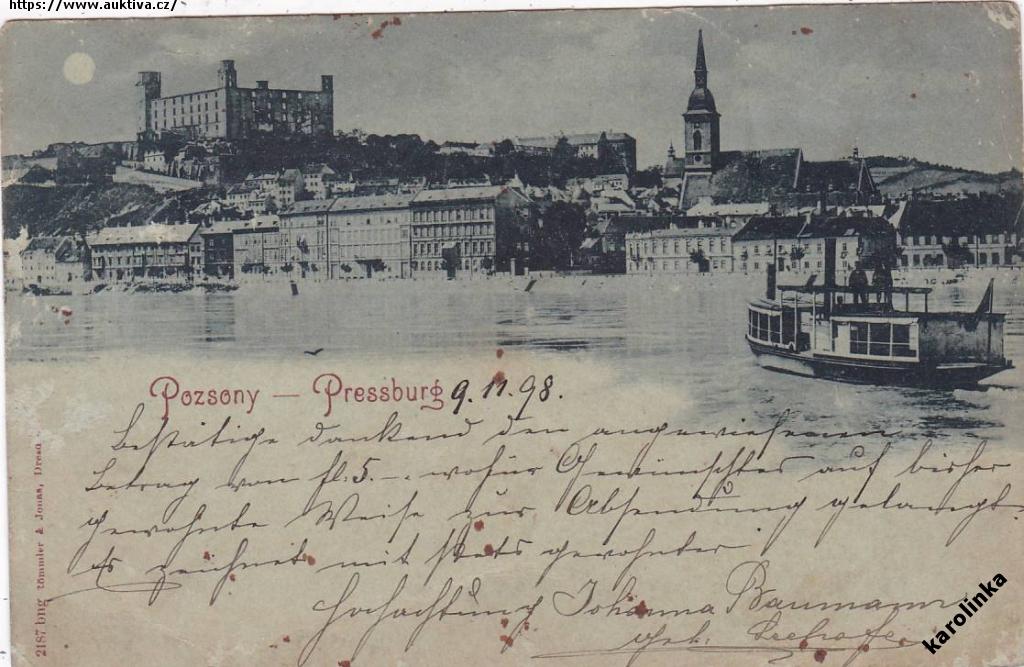 https://www.auktiva.cz/
Pozsony — Pressburg 9.11.98.
Bestätige dankend den angewiesenen
Betrag von fl. 5.–. wofür Gewünschtes auf bisher
gewohnte Weise zur Absendung gelangt.
Es zeichnet mit stets gewohnter
Hochachtung Johanna Baumann
geb.
karolinka
2187 bhg Römmler & Jonas, Dresd